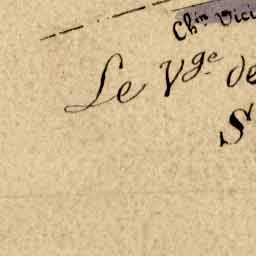 Ch.in Vici
Le V.ge de
S.r